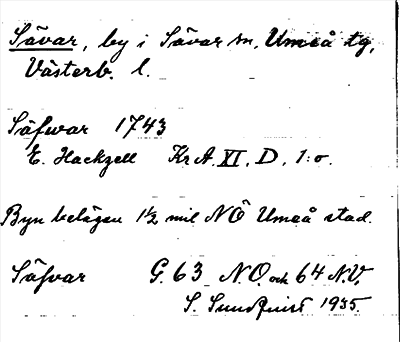 Sävar, by i Sävar sn, Umeå tg,
Västerb. l.
Säfwar 1743
E. Hackzell Kr.A. XI, D, 1:o.
Byn belägen 1½ mil NÖ Umeå stad.
Säfvar G. 63 N.O. och 64 N.V.
S. Sundquist 1935.